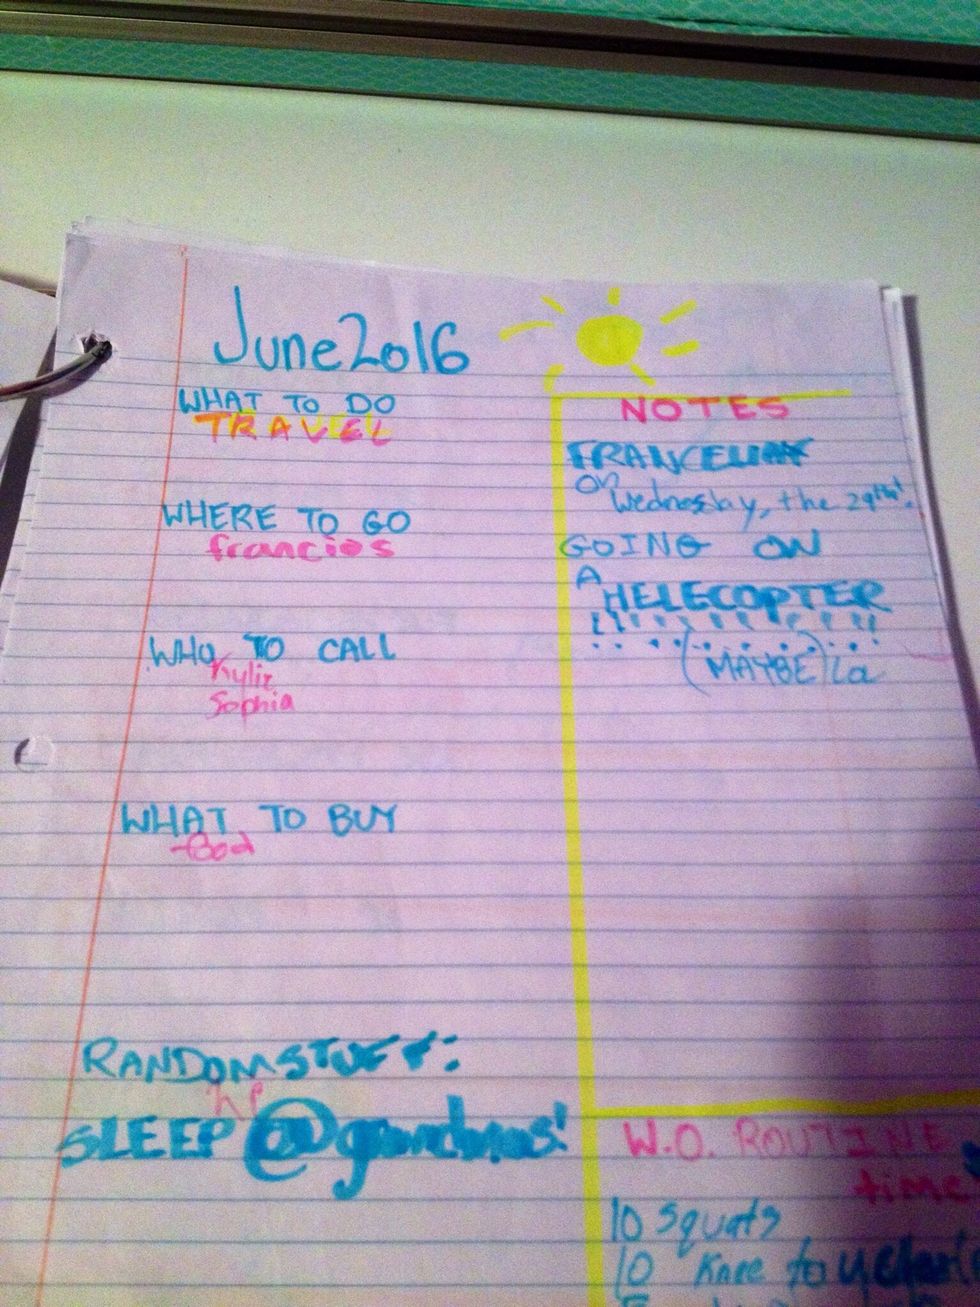 June 2016
WHAT TO DO
TRAVEL
WHERE TO GO
francios
WHO TO CALL
Kylie
Sophia
WHAT TO BUY
RANDOM STUFF:
SLEEP @ grandmas!
NOTES
on Wednesday, the 29th!
GOING ON
A HELECOPTER
!!!!!!!!!!
(MAYBE) La
W.O. ROUTINE
time
10 squats
10 Knee to